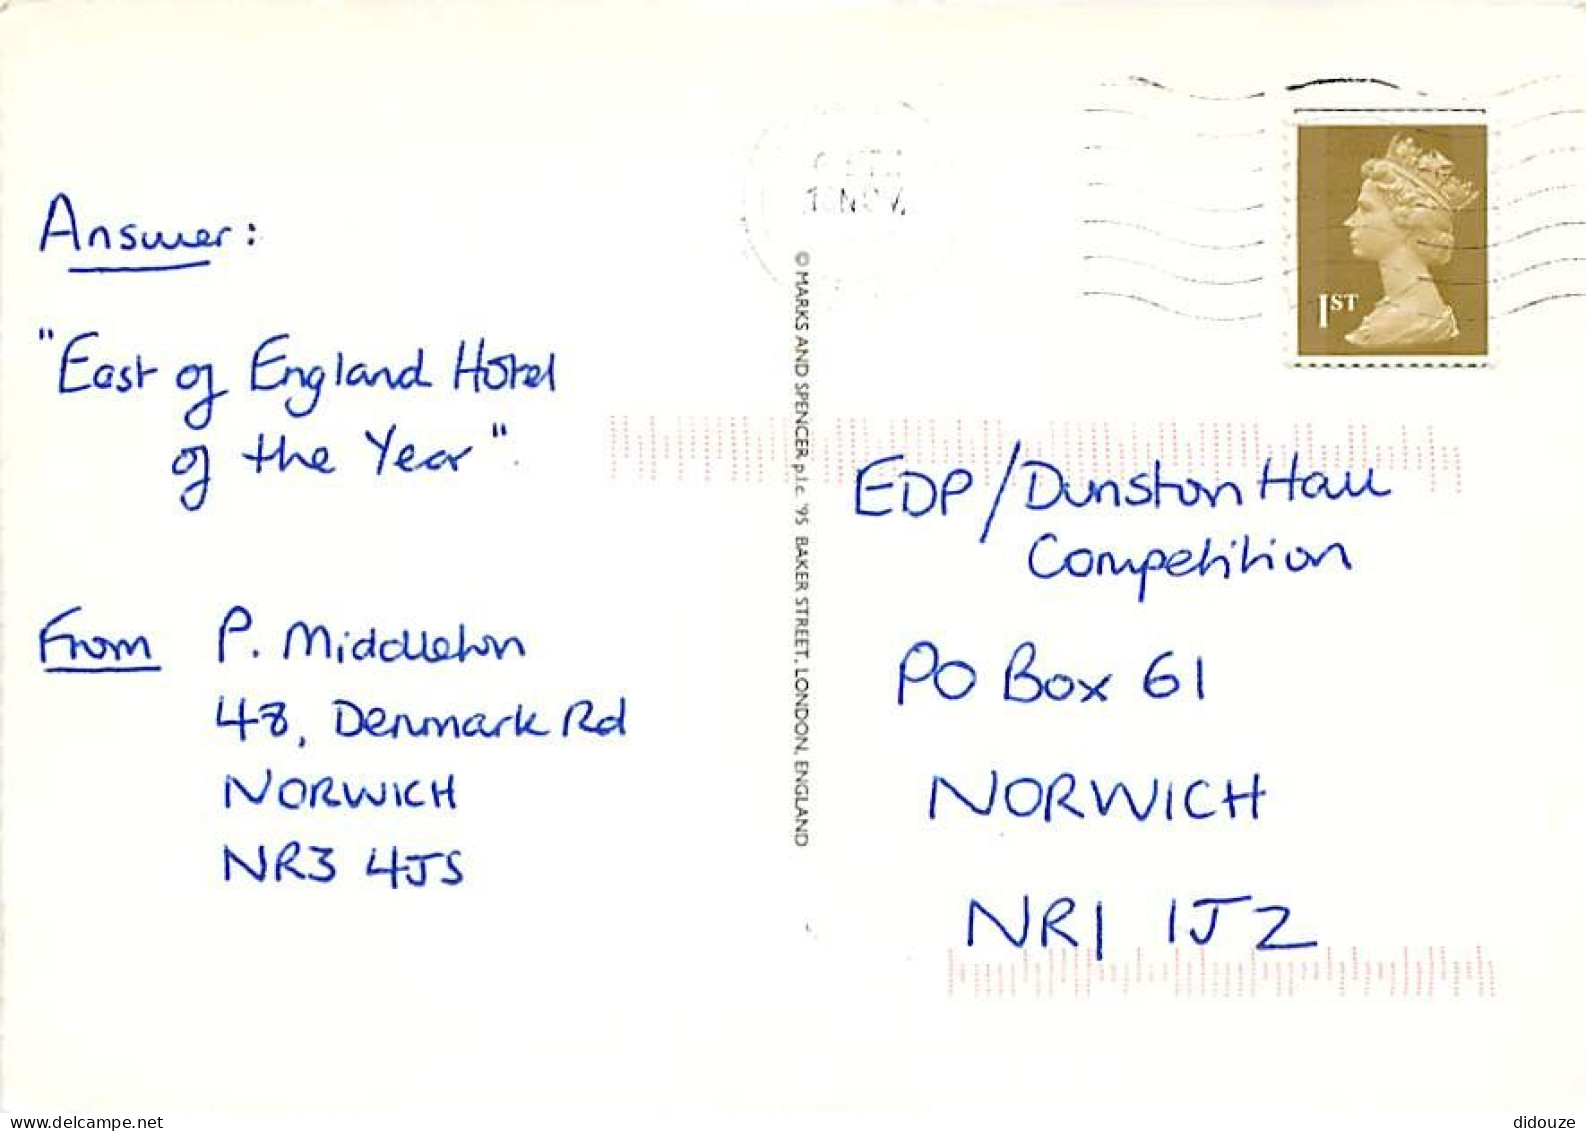 Answer:
"East of England Hotel
of the Year".
From P. Middleton
48, Denmark Rd
NORWICH
NR3 4JS
© MARKS AND SPENCER p.l.c. '95 BAKER STREET, LONDON, ENGLAND
NOV
1ST
EDP/Dunston Hall
Competition
PO Box 61
NORWICH
NR1 1JZ
www.delcampe.net
didouze